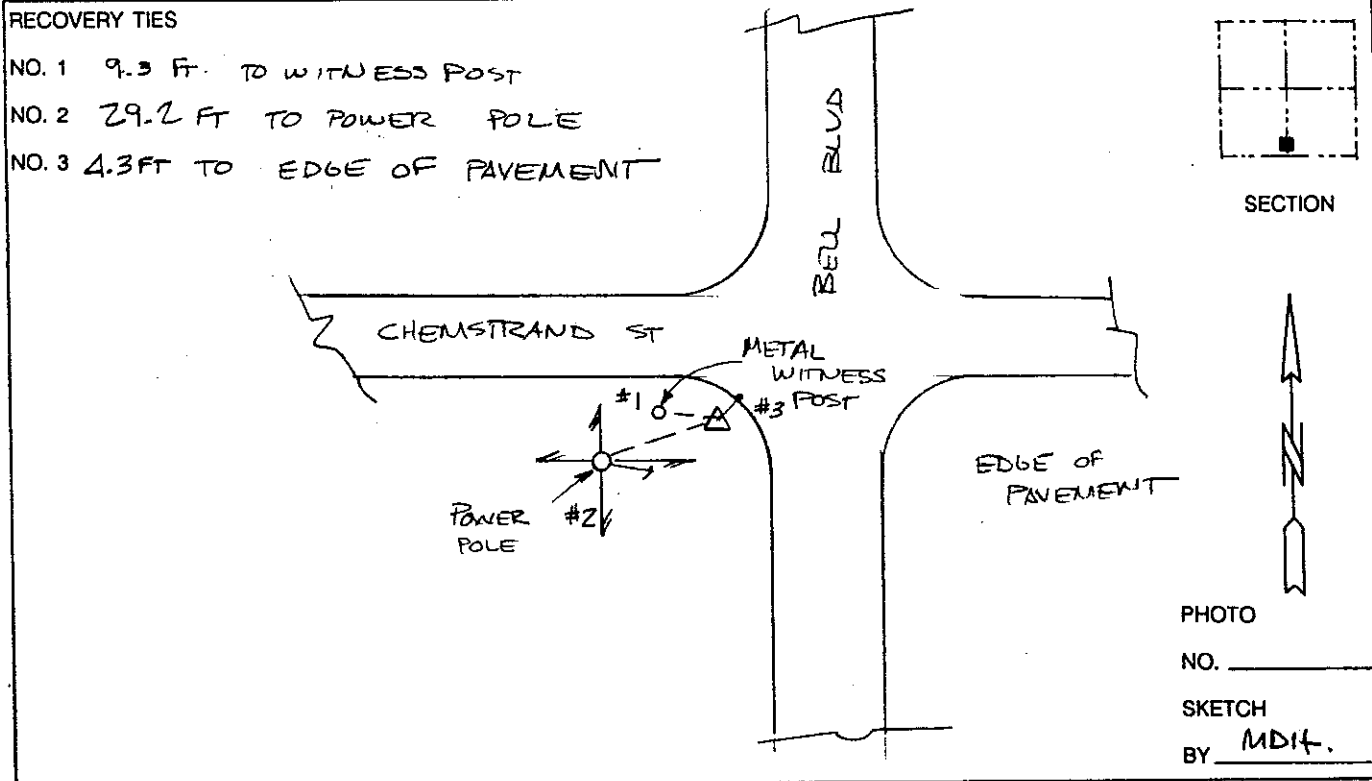 RECOVERY TIES
NO. 1 9.3 FT. TO WITNESS POST
NO. 2 29.2 FT TO POWER POLE
NO. 3 4.3FT TO EDGE OF PAVEMENT
SECTION
BELL BLVD
CHEMSTRAND ST
METAL
WITNESS
POST
#1
#3
#2
POWER
POLE
EDGE OF
PAVEMENT
N
PHOTO
NO.
SKETCH
BY MDH.